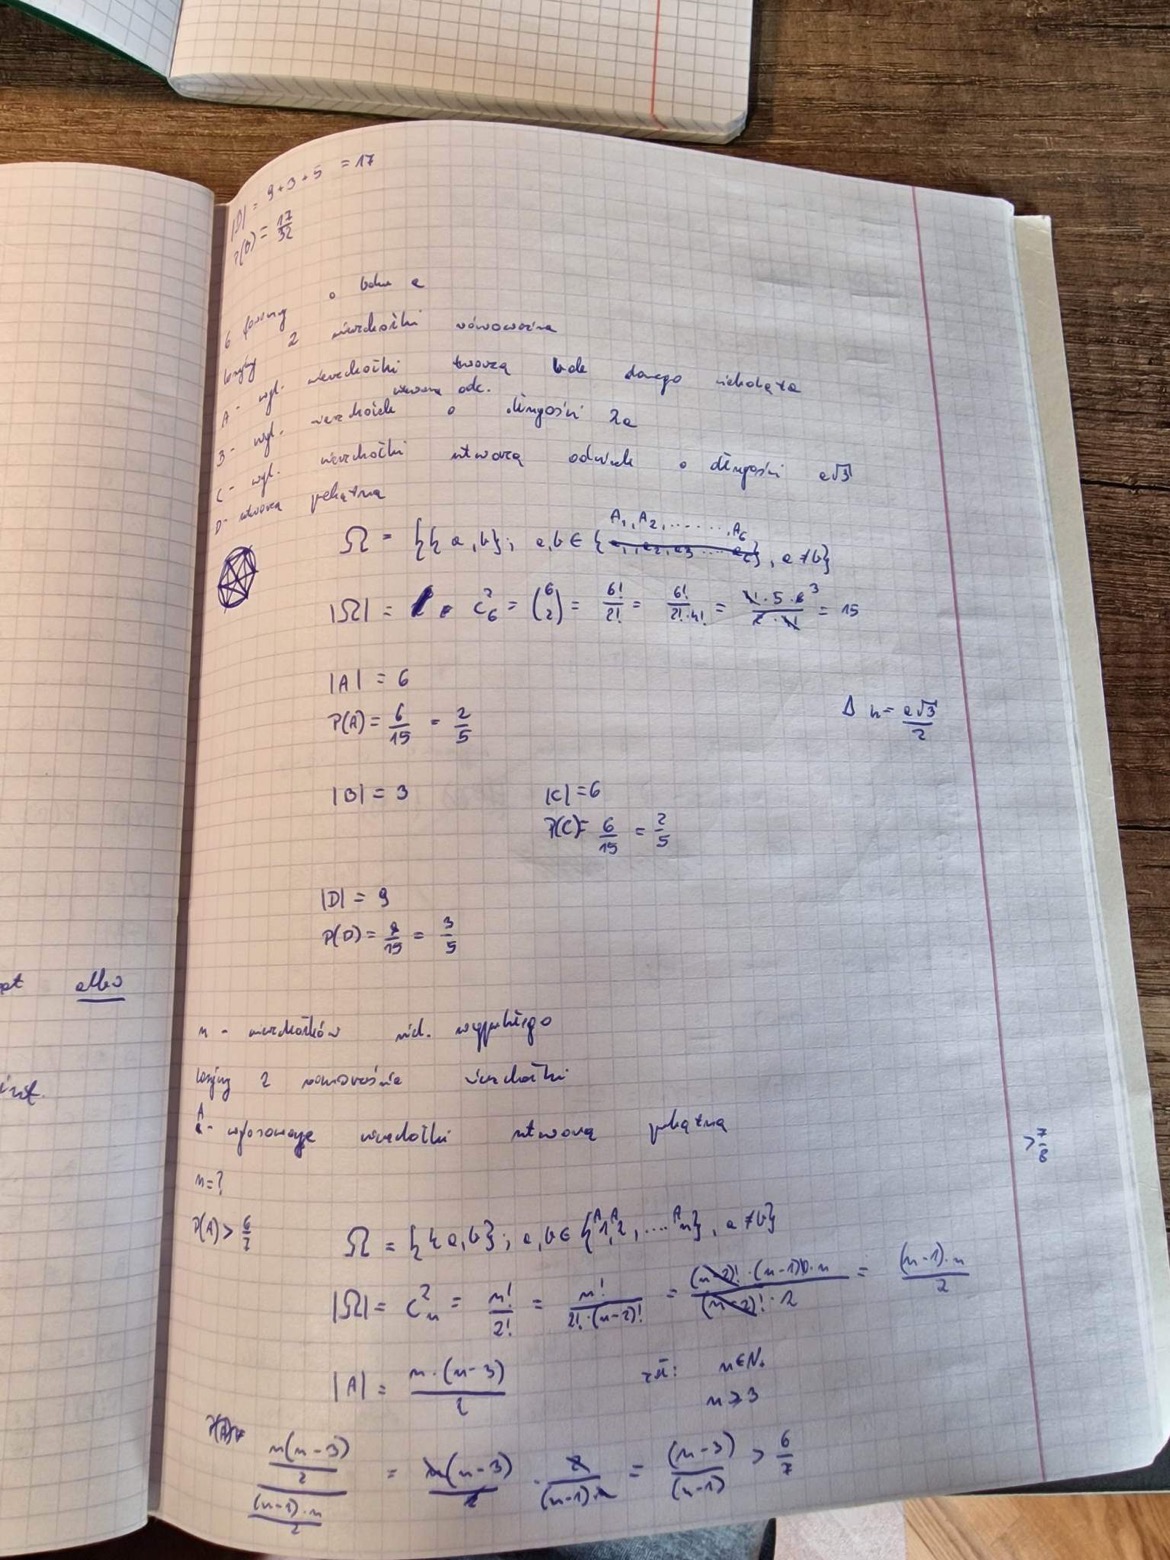 |D| = 9+3+5 = 17
P(D) = 17/32
6 foremny o boku a
losujemy 2 wierzchołki równocześnie
A - wyl. wierzchołki tworzą bok danego
utworzą odc.
B - wyl. o długości 2a
C - wyl. wierzchołki utworzą odcinek o długości a√3
D - utworzą przekątną
A₁, A₂, ........, A₆
Ω = {{a,b}; a,b ∈ { }, a≠b}
|Ω| = C₆² = (6 2) = 6!/2! = 6!/2!·4! = 4!·5·6 3/2·4! = 15
|A| = 6
P(A) = 6/15 = 2/5
Δ h = a√3/2
|B| = 3 |C| = 6
P(C) = 6/15 = 2/5
|D| = 9
P(D) = 9/15 = 3/5
at albo
n - wierzchołków wypukłego
losujemy 2 wierzchołki
A - wylosowane wierzchołki utworzą przekątną
> 7/8
n = ?
P(A) > 6/7 Ω = {{a,b}; a,b ∈ {A₁, A₂, .... Aₙ}, a≠b}
|Ω| = Cₙ² = n!/2! = n!/2!·(n-2)! = (n-2)!·(n-1)·n/(n-2)!·2 = (n-1)·n/2
|A| = n·(n-3)/2 zał: n∈N₊
n ≥ 3
P(A) =
n(n-3)/2 / (n-1)·n/2 = n(n-3)/2 · 2/(n-1)n = (n-3)/(n-1) > 6/7